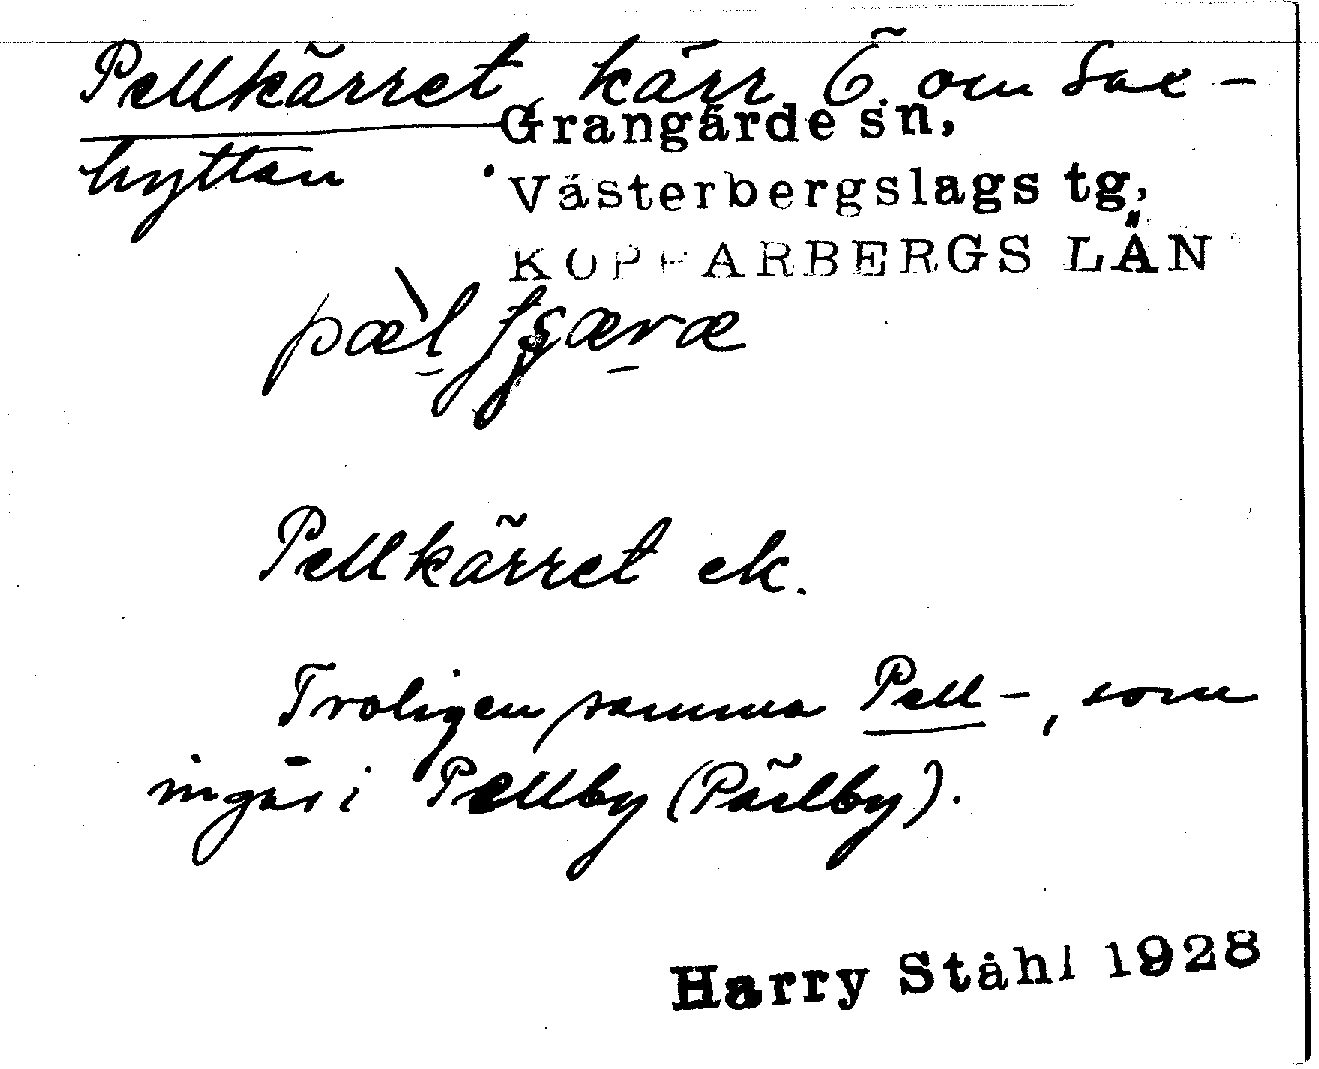 Pellkärret, kärr Ö. om Sax-
hyttan
Grangärde sn,
Västerbergslags tg,
KOPPARBERGS LÄN
Pellkärret ek.
Troligen samma Pell-, som
ingår i Pellby (Pällby).
Harry Ståhl 1928